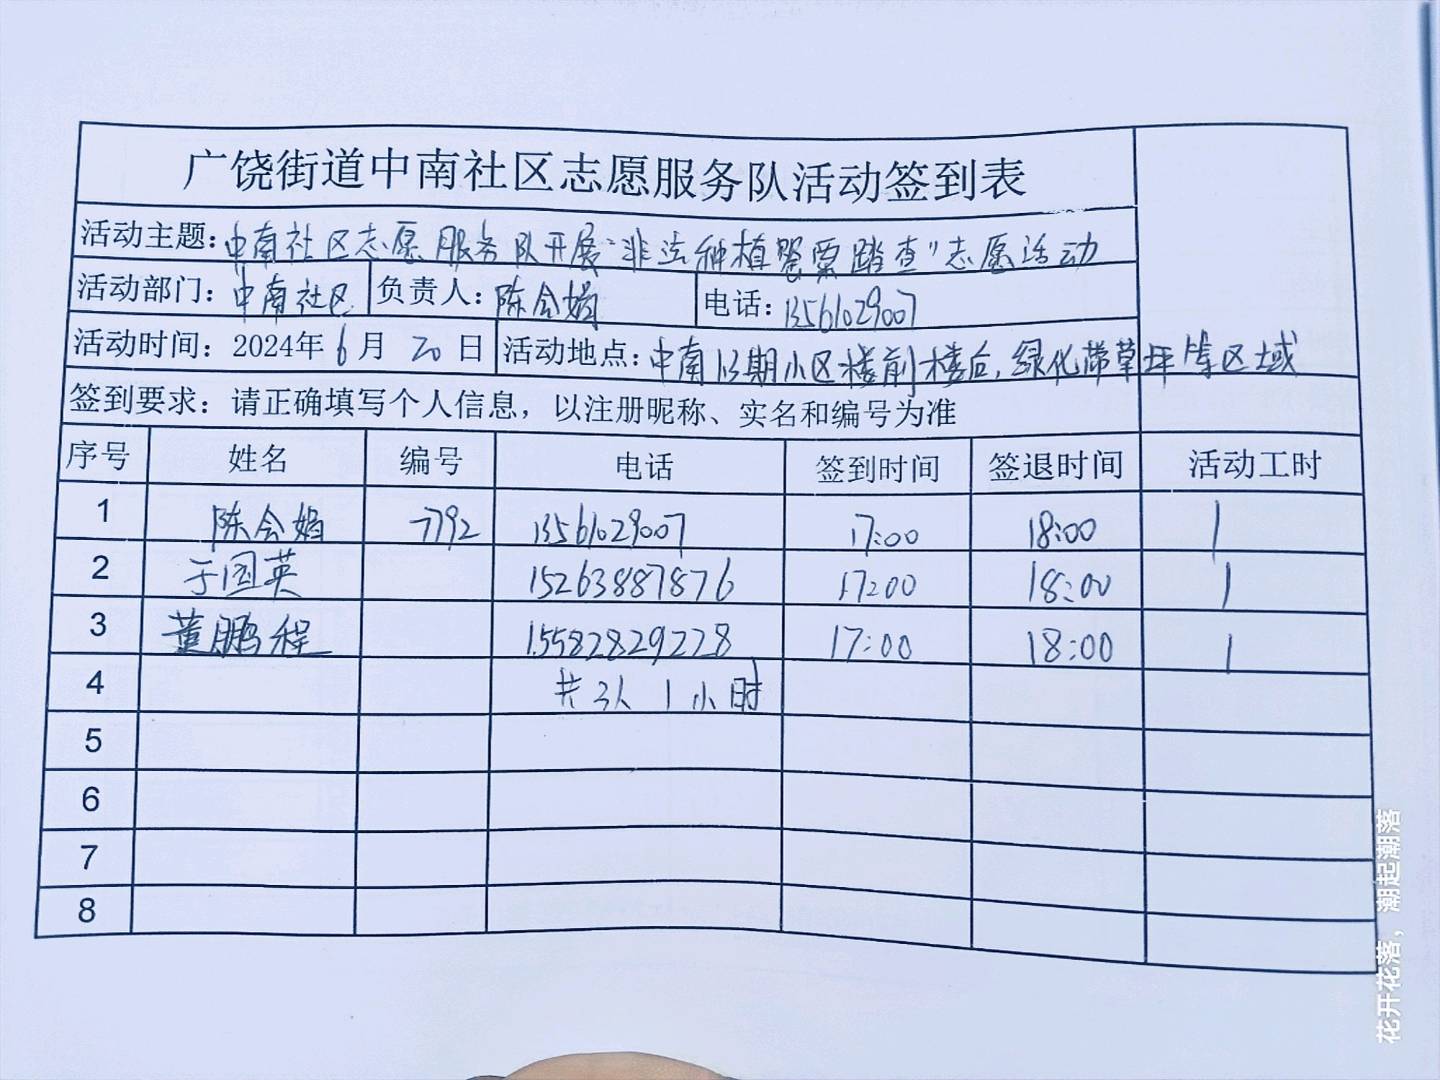 广饶街道中南社区志愿服务队活动签到表
活动主题：中南社区志愿服务队开展“非法种植罂粟踏查”志愿活动
活动部门：中南社区 负责人：陈会娟 电话：13561029007
活动时间：2024年6月20日 活动地点：中南1.3期小区楼前楼后，绿化带草坪等区域
签到要求：请正确填写个人信息，以注册昵称、实名和编号为准
序号 姓名 编号 电话 签到时间 签退时间 活动工时
1 陈会娟 7792 13561029007 17:00 18:00 1
2 于国英 15263887876 17:00 18:00 1
3 董鹏程 15582829228 17:00 18:00 1
4 共3人 1小时
5
6
7
8
花开花落，潮起潮落